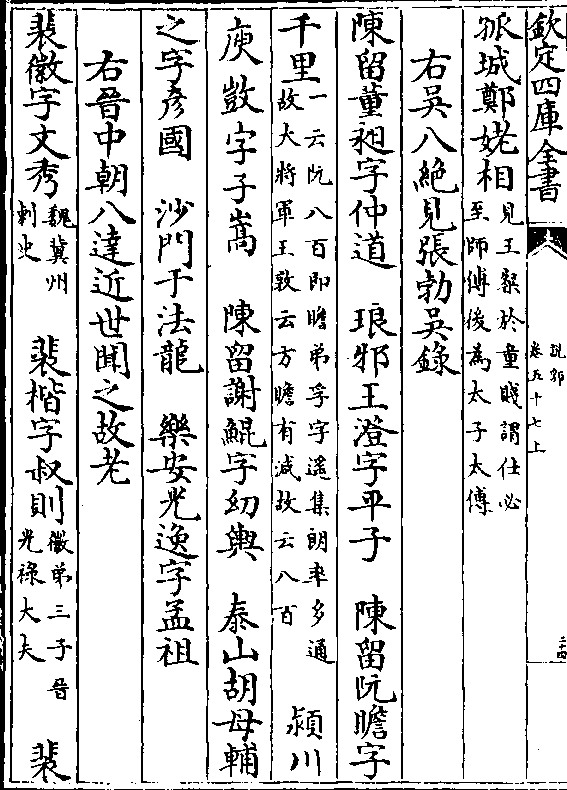 欽定四庫全書
說郛
卷五十七上
孤城鄭姥相見王粲於童賤謂仕必
至師傅後為太子太傅
右吳八絶見張勃吳錄
陳留董昶字仲道　琅邪王澄字平子　陳留阮瞻字
千里一云阮八百即瞻弟孚字遙集朗率多通
故大將軍王敦云方瞻有減故云八百　潁川
庾敳字子嵩　陳留謝鯤字幼輿　泰山胡母輔
之字彥國　沙門于法龍　樂安光逸字孟祖
右晉中朝八達近世聞之故老
裴徽字文秀魏冀州
刺史　裴楷字叔則徽弟三子晉
光祿大夫　裴